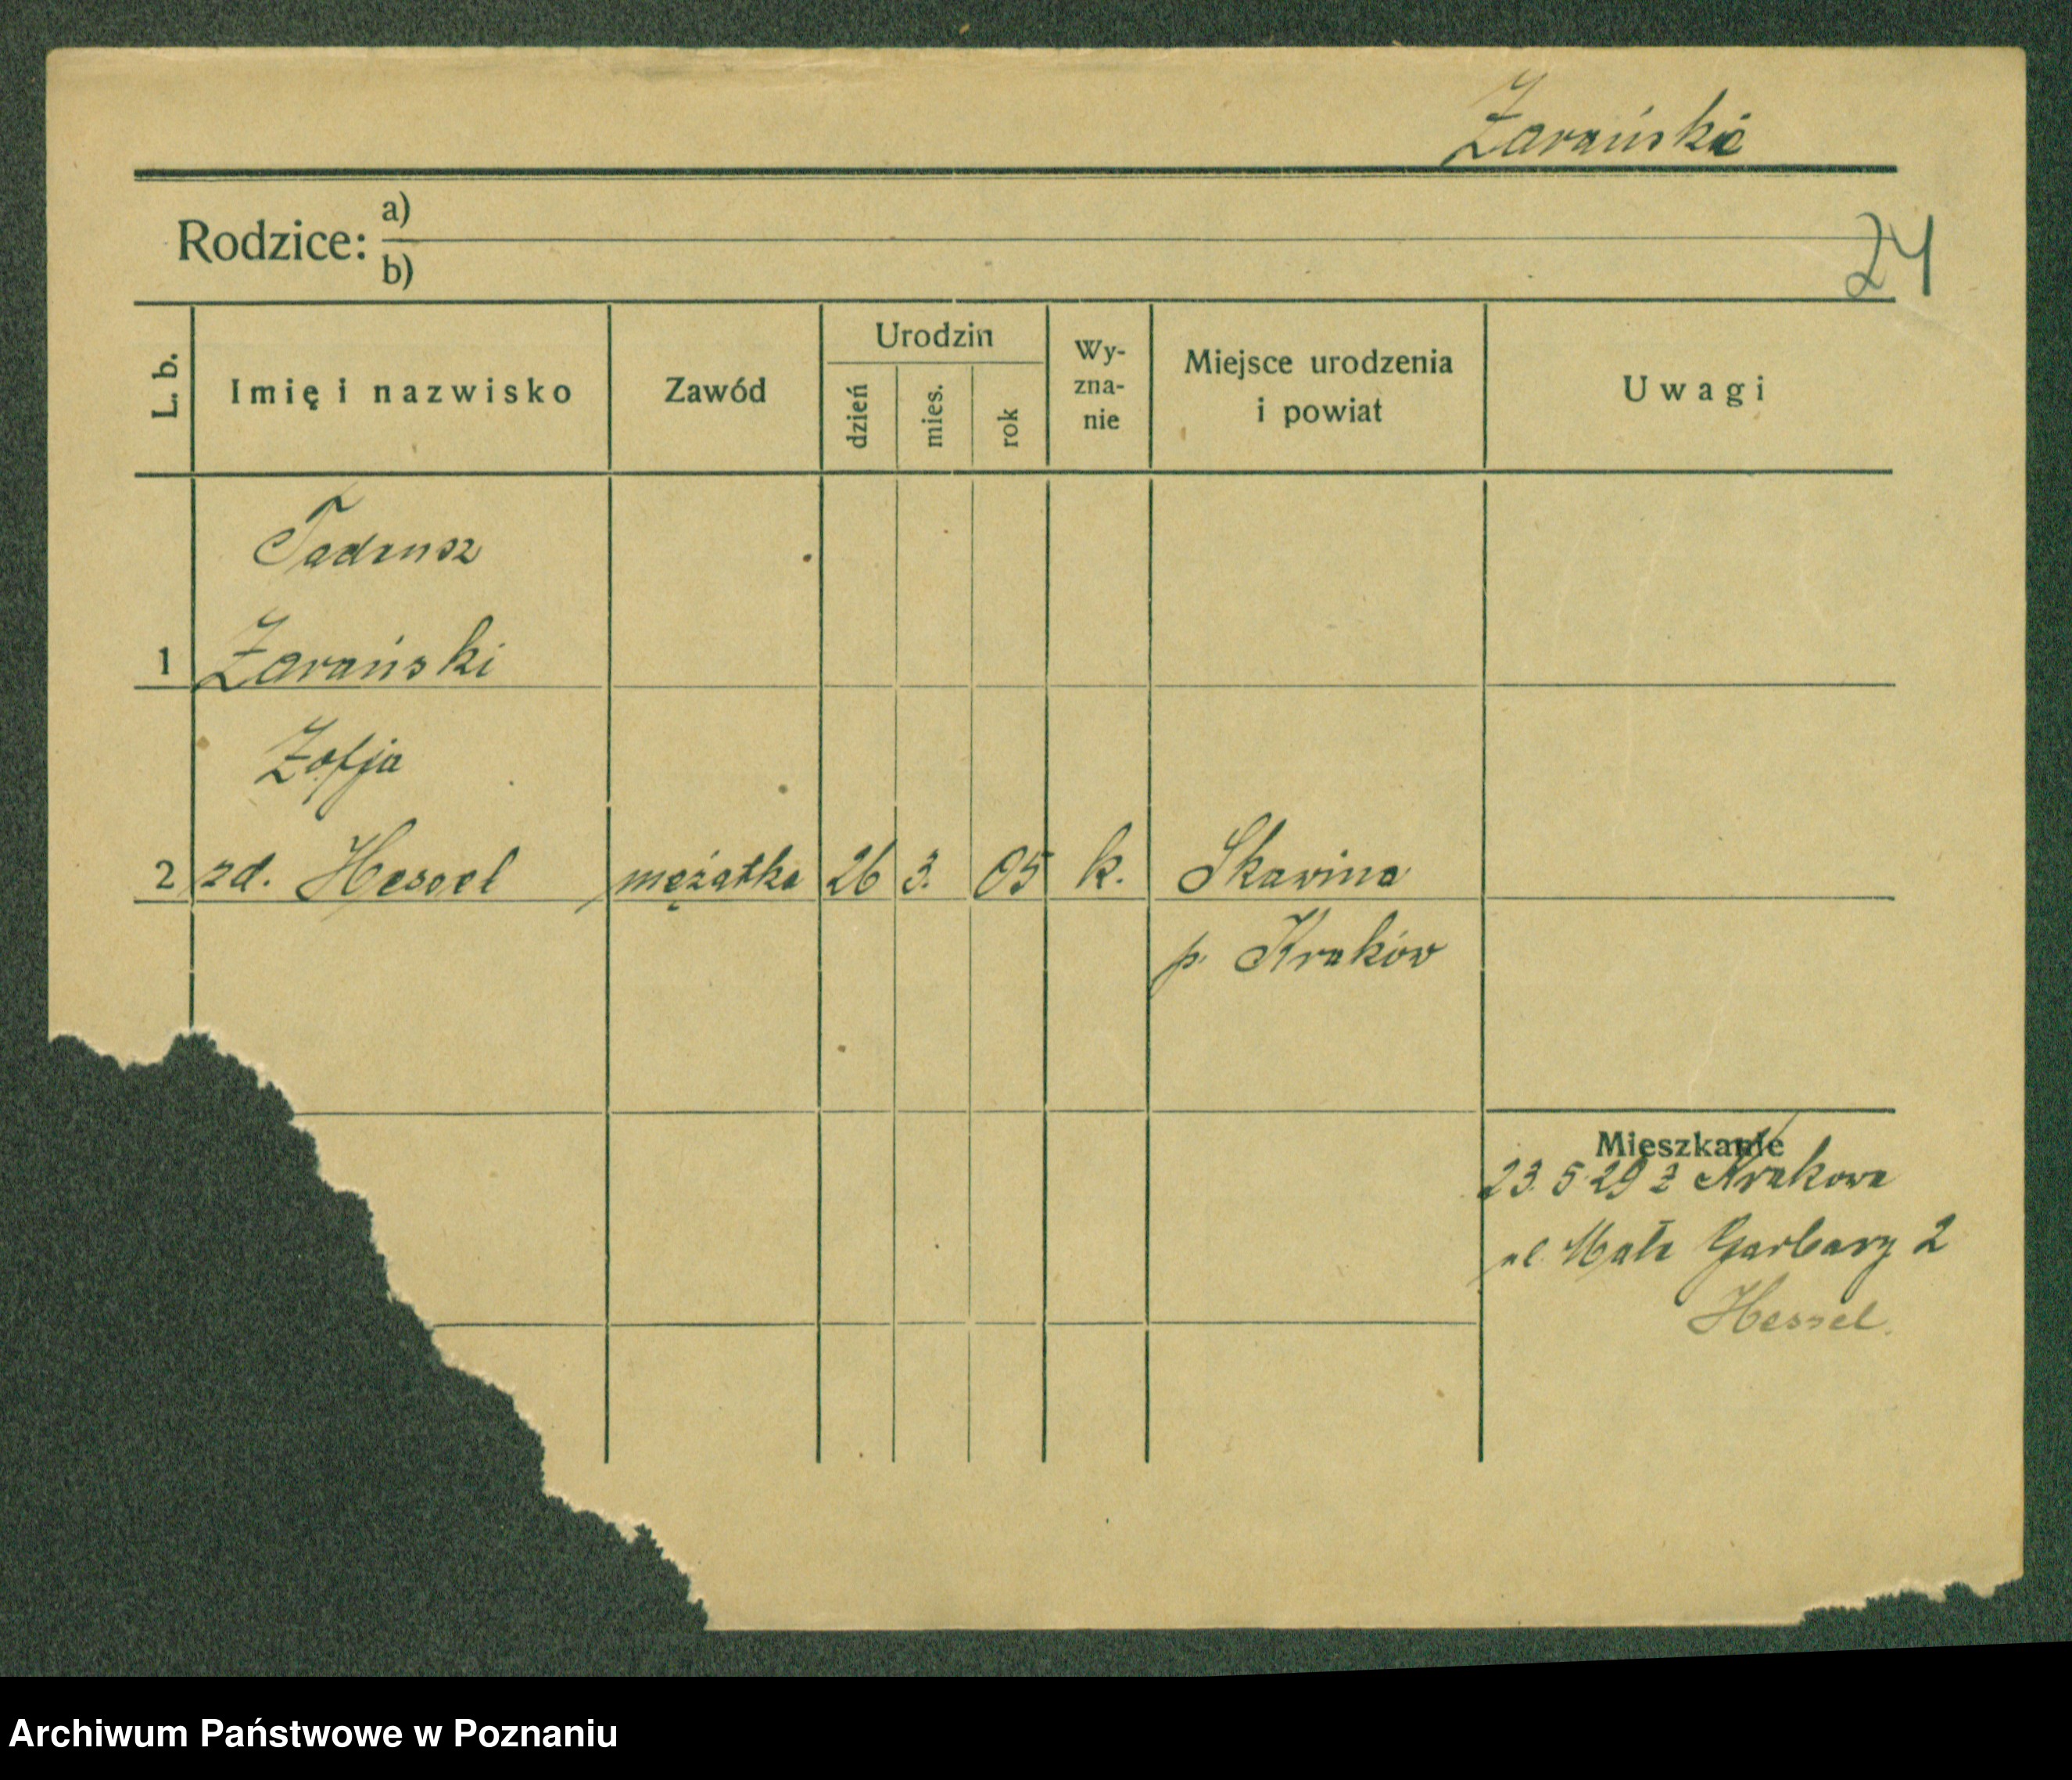 Żarańskie
Rodzice:
a)
b)
24
L. b.
Imię i nazwisko
Zawód
Urodzin
dzień
mies.
rok
Wy-
zna-
nie
Miejsce urodzenia
i powiat
Uwagi
Tadeusz
1 Żarański
Zofja
2 zd. Hessel mężatka 26 3. 05 k. Skawina
p. Kraków
Mieszkanie
23.5.29 z Krakowa
ul. Małe Garbary 2
Hessel.
Archiwum Państwowe w Poznaniu